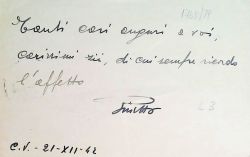 Tanti cari auguri a voi,
carissimi zii, di cui sempre ricordo
l'affetto
C.V. - 21-XII-42
L 3